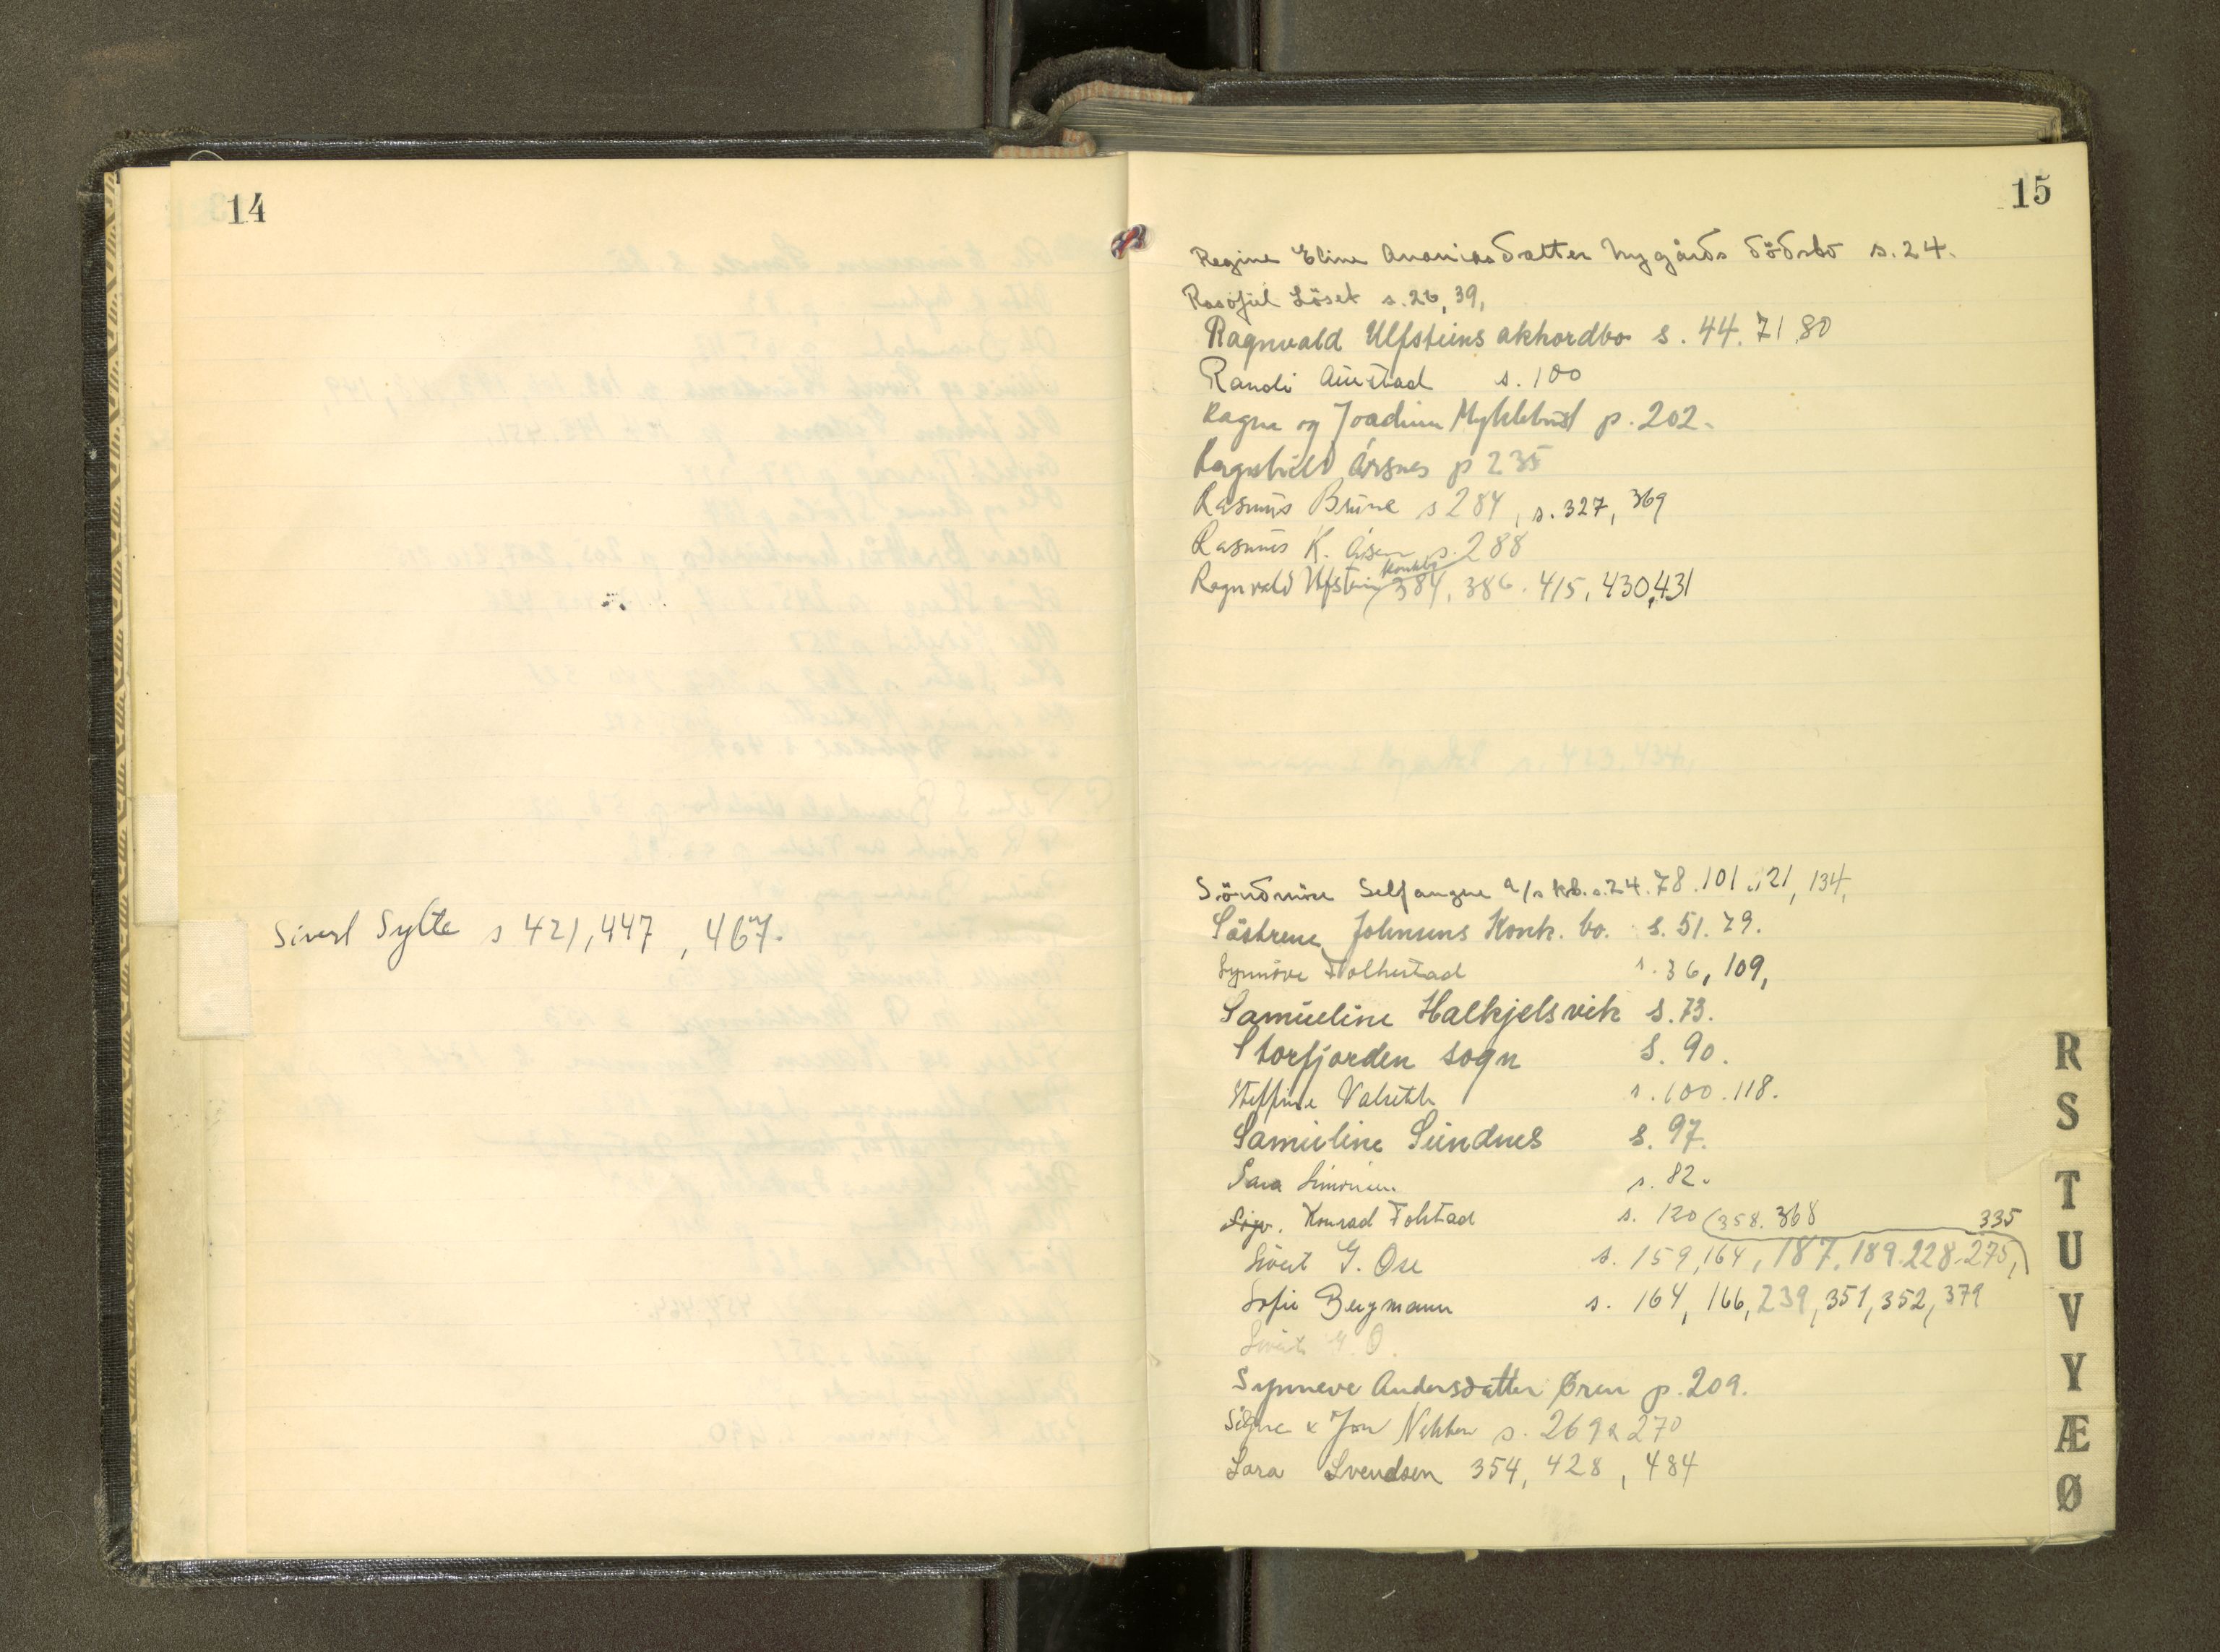 14
Sivert Sylte s 421, 447, 467.
15
Regine Eline Ananiasdatter Nygårds dödsbo s. 24.
Løset s. 26, 39,
Ragnvald Ulfsteins akkordbo s. 44. 71, 80
Randi Aurstad s. 100
Ragna og Joachim Myklebust p. 202.
Ragnhild Årsnes p 235
Rasmus Brune s 284, s. 327, 369
Rasmus K. Åsen p. 288
Ragnvald Ulfstein konkbo 384, 386. 415, 430, 431
Söndmöre Selfangne a/s kb. s. 24. 78. 101. 121, 134,
Söstrene Johnsens Konk. bo. s. 51. 79.
Synnöve Folkestad s. 36, 109,
Samueline Halkjelsvik s. 73.
Storfjorden sogn s. 90.
Steffine Valseth s. 100. 118.
Samueline Sundnes s. 97.
Sara Simonsen s. 82.
Sigv. Konrad Folstad s. 120 (358. 368 335
Sivert G. Ose s. 159, 164, 187, 189. 228. 275,
Sofie Bergmann s. 164, 166, 239, 351, 352, 379
Sivert G. O.
Synneve Andersdatter Øren p. 209.
Signe & Jon Nekken s. 269 & 270
Sara Svendsen 354, 428, 484
R
S
T
U
V
Y
Æ
Ø